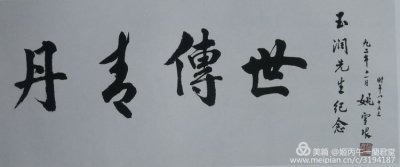 玉润先生纪念
世傳丹青
九二年十一月 姚雪垠
时年八十三
美篇 @姬丙午—蘭君堂
www.meipian.cn/c/3194187